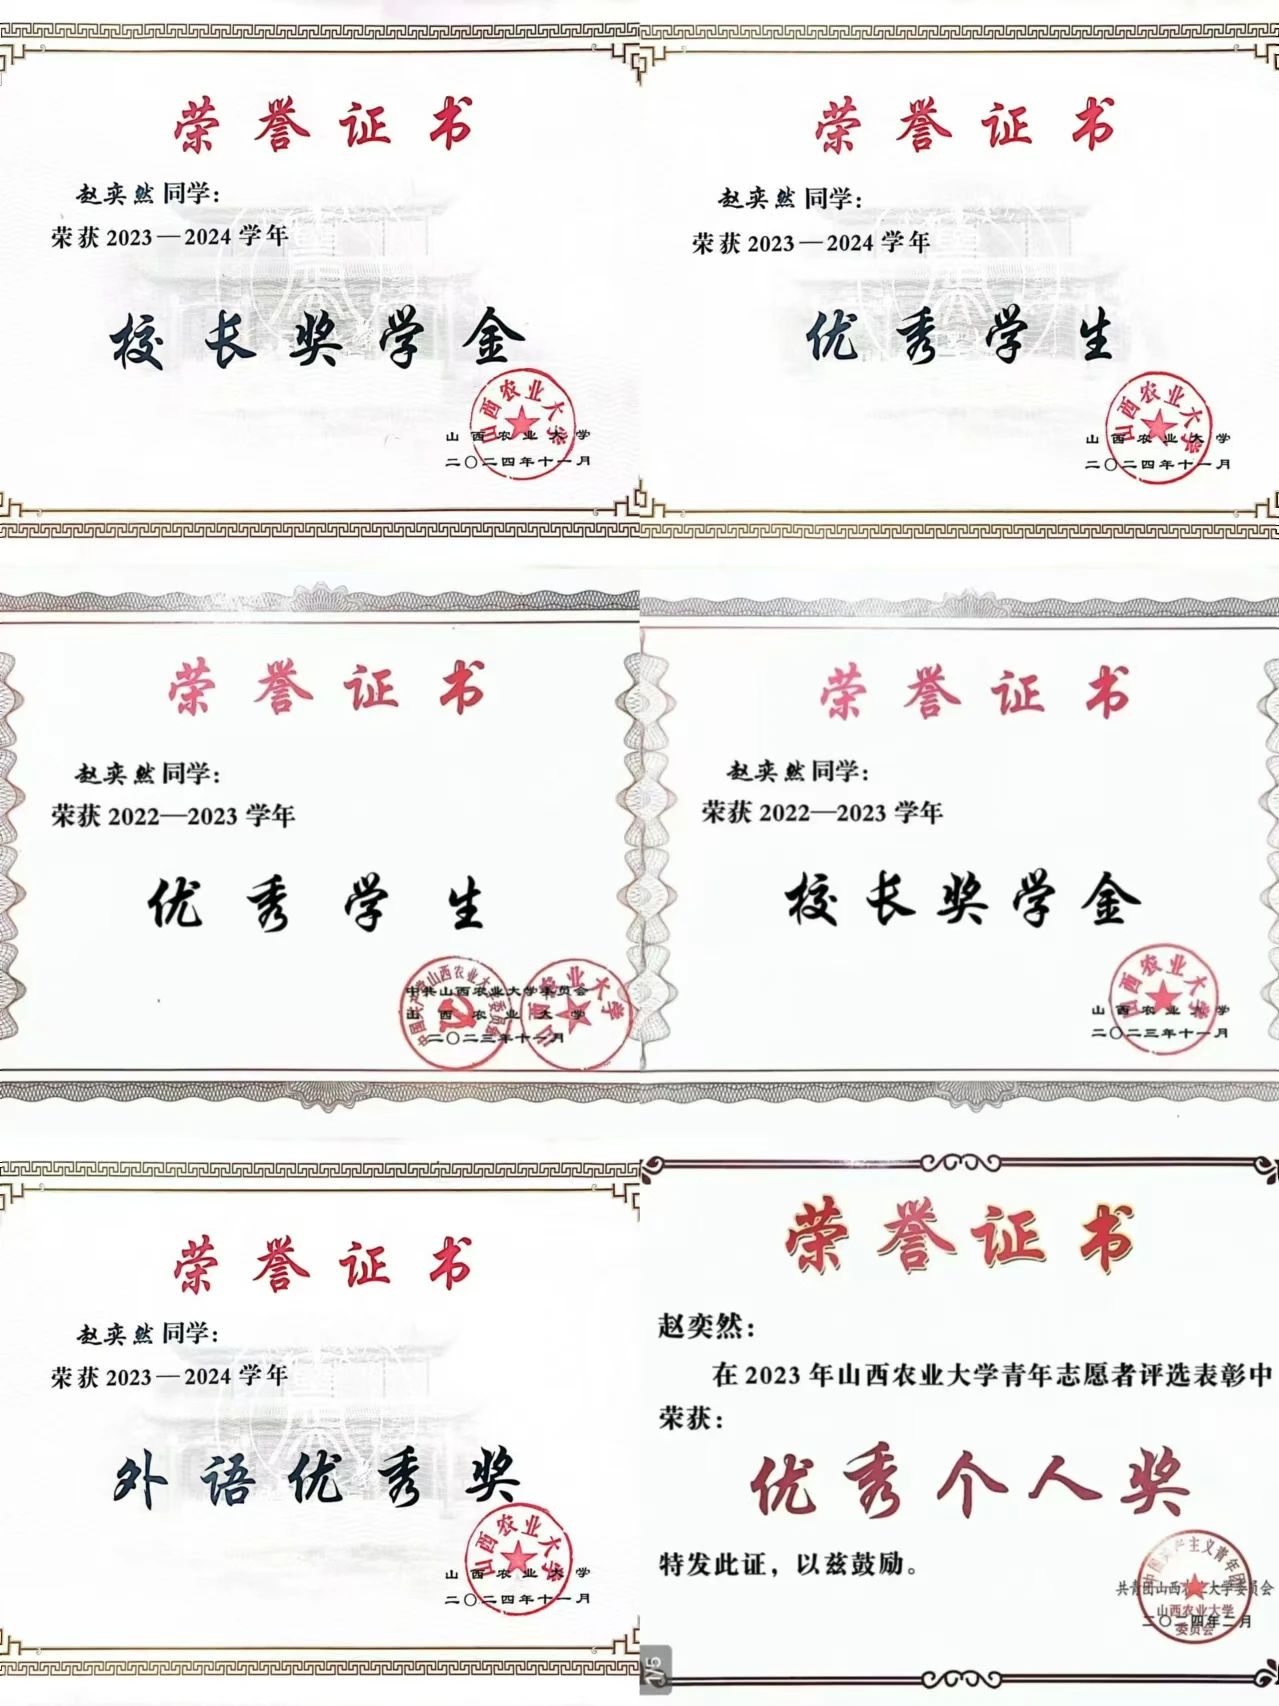 荣誉证书
赵奕然同学：
荣获2023—2024学年
校长奖学金
山西农业大学
山西农业大学
二〇二四年十一月
荣誉证书
赵奕然同学：
荣获2023—2024学年
优秀学生
山西农业大学
山西农业大学
二〇二四年十一月
荣誉证书
赵奕然同学：
荣获2022—2023学年
优秀学生
中国共产党山西农业大学委员会
山西农业大学
中共山西农业大学委员会
山西农业大学
二〇二三年十一月
荣誉证书
赵奕然同学：
荣获2022—2023学年
校长奖学金
山西农业大学
山西农业大学
二〇二三年十一月
荣誉证书
赵奕然同学：
荣获2023—2024学年
外语优秀奖
山西农业大学
山西农业大学
二〇二四年十一月
荣誉证书
赵奕然：
在2023年山西农业大学青年志愿者评选表彰中
荣获：
优秀个人奖
特发此证，以兹鼓励。
中国共产主义青年团
共青团山西农业大学委员会
山西农业大学
二〇二四年二月
委员会
1/5